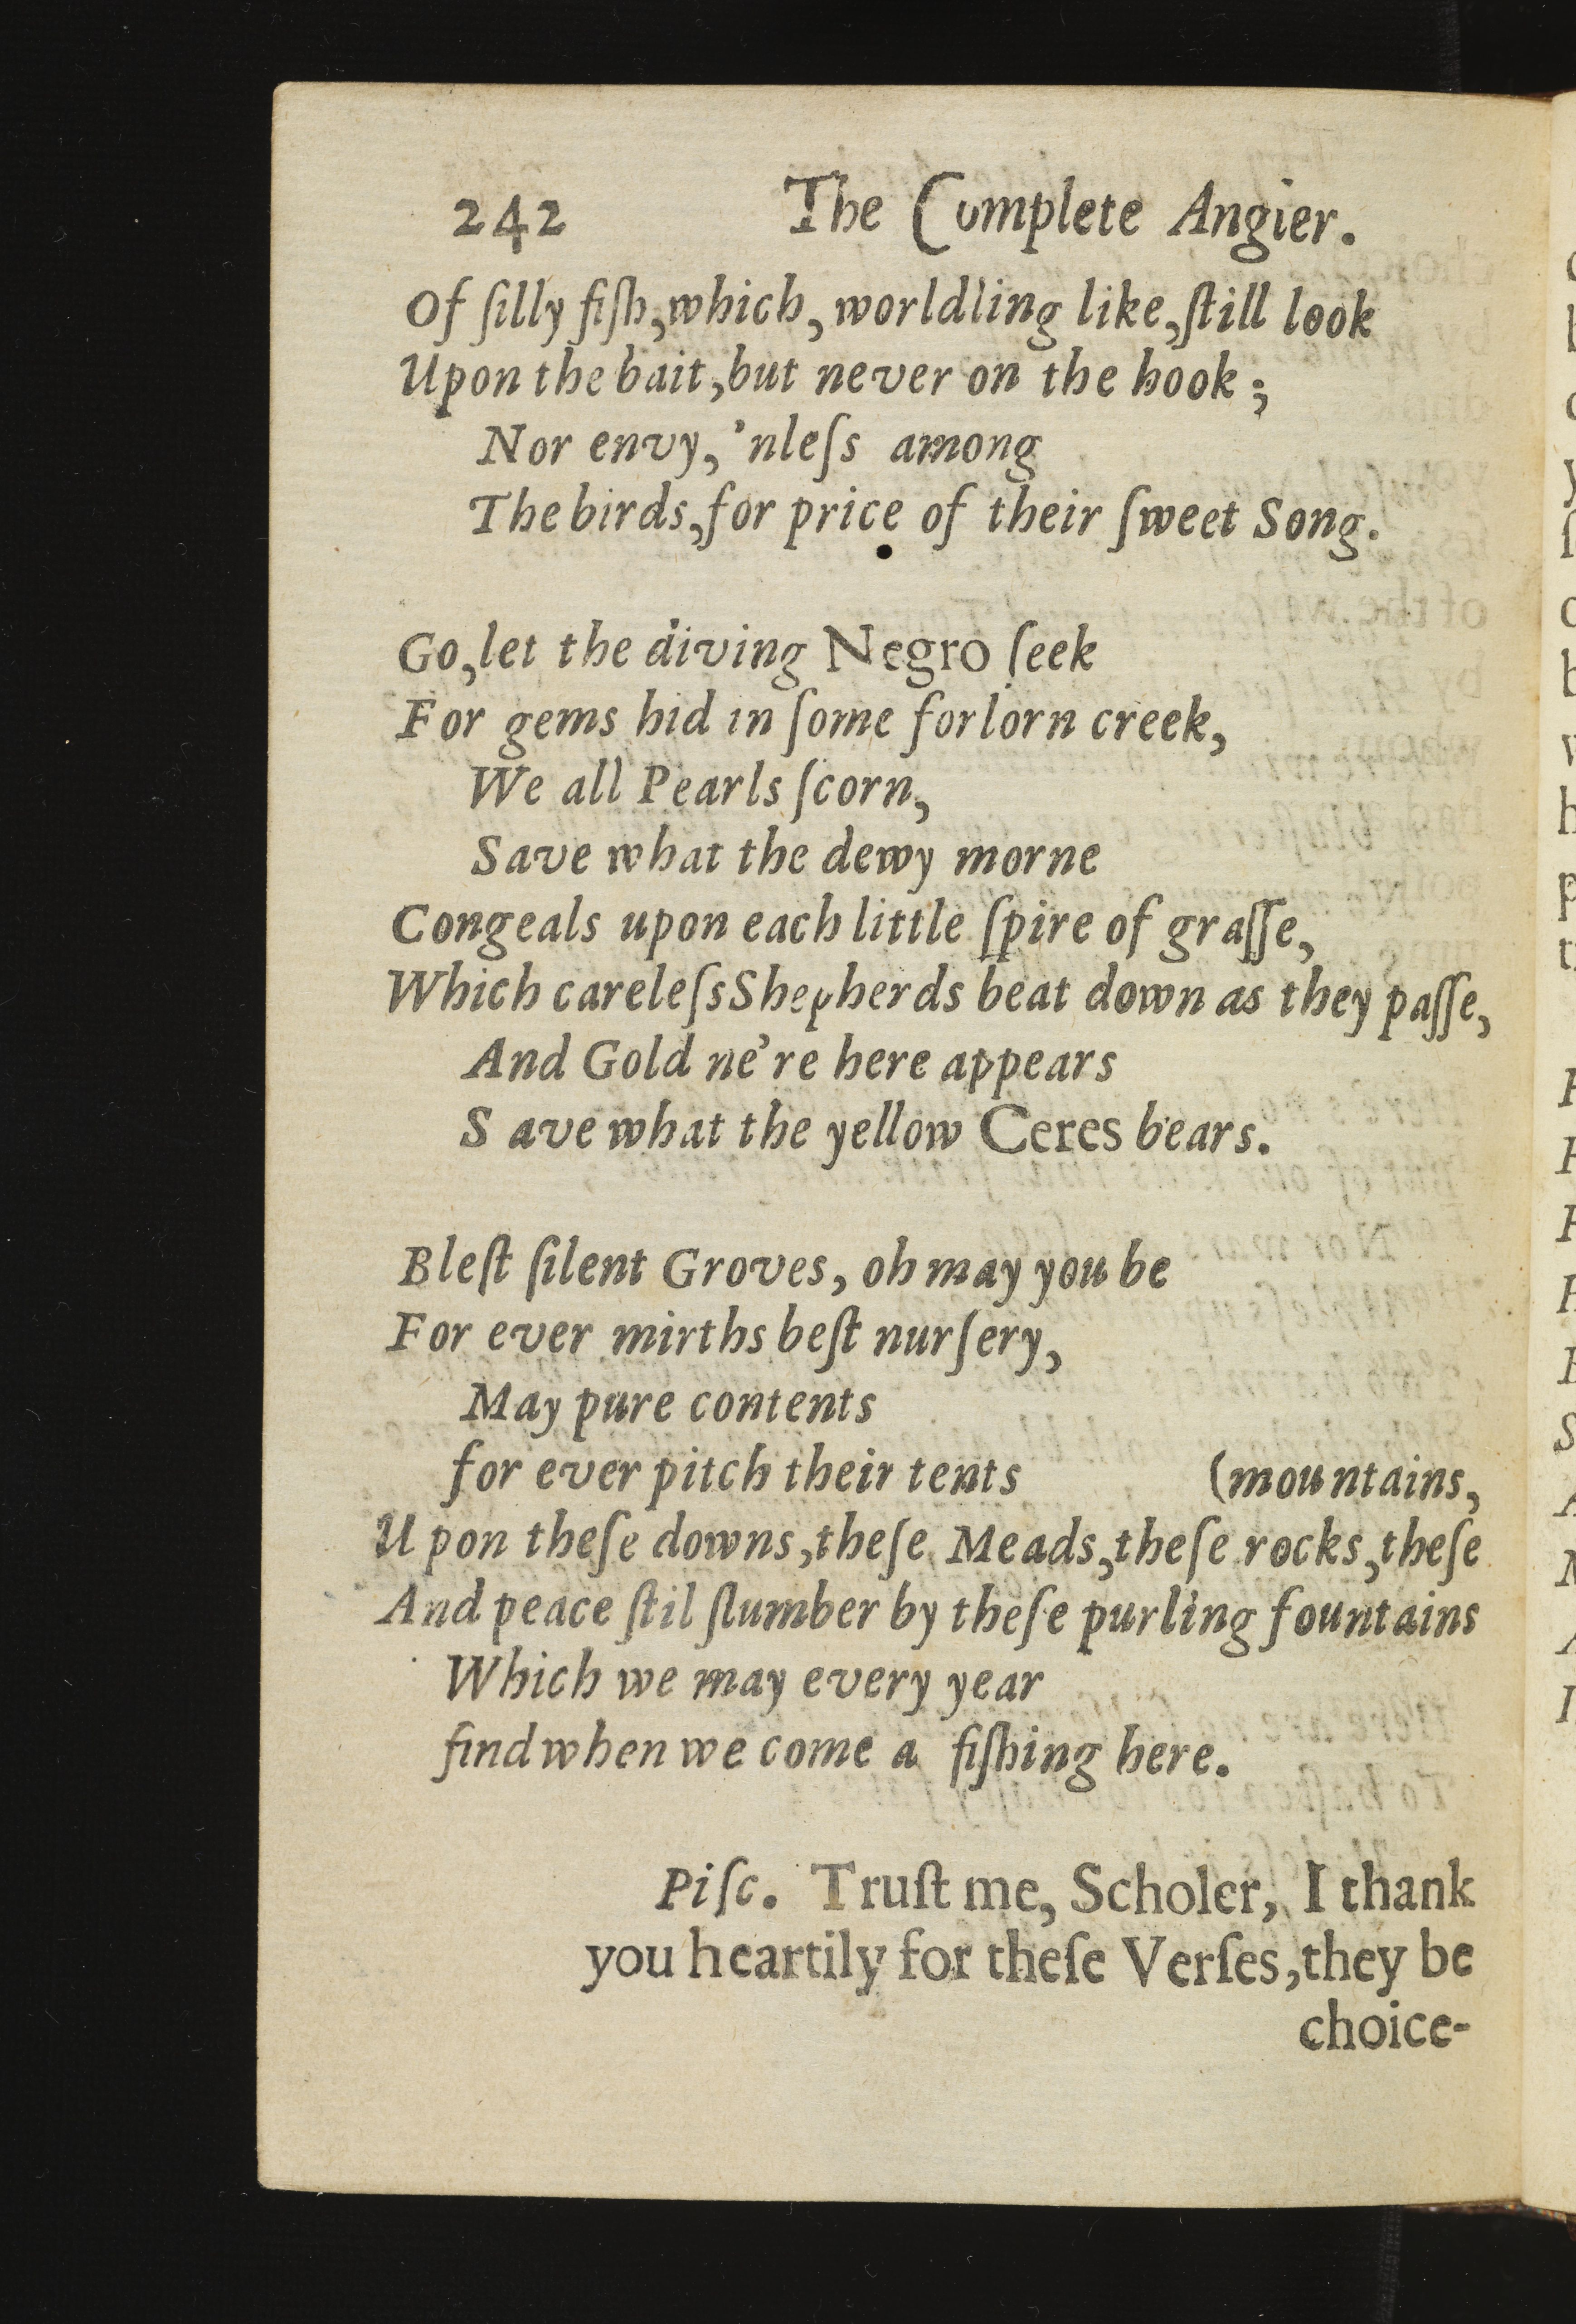 242 The Complete Angler.
Of ſilly fiſh, which, worldling like, ſtill look
Upon the bait, but never on the hook;
Nor envy, 'nleſs among
The birds, for price of their ſweet Song.
Go, let the diving Negro ſeek
For gems hid in ſome forlorn creek,
We all Pearls ſcorn,
Save what the dewy morne
Congeals upon each little ſpire of graſſe,
Which careleſs Shepherds beat down as they paſſe,
And Gold ne're here appears
Save what the yellow Ceres bears.
Bleſt ſilent Groves, oh may you be
For ever mirths beſt nurſery,
May pure contents
for ever pitch their tents (mountains,
Upon theſe downs, theſe Meads, theſe rocks, theſe
And peace ſtil ſlumber by theſe purling fountains
Which we may every year
find when we come a fiſhing here.
Piſc. Truſt me, Scholer, I thank
you heartily for theſe Verſes, they be
choice-